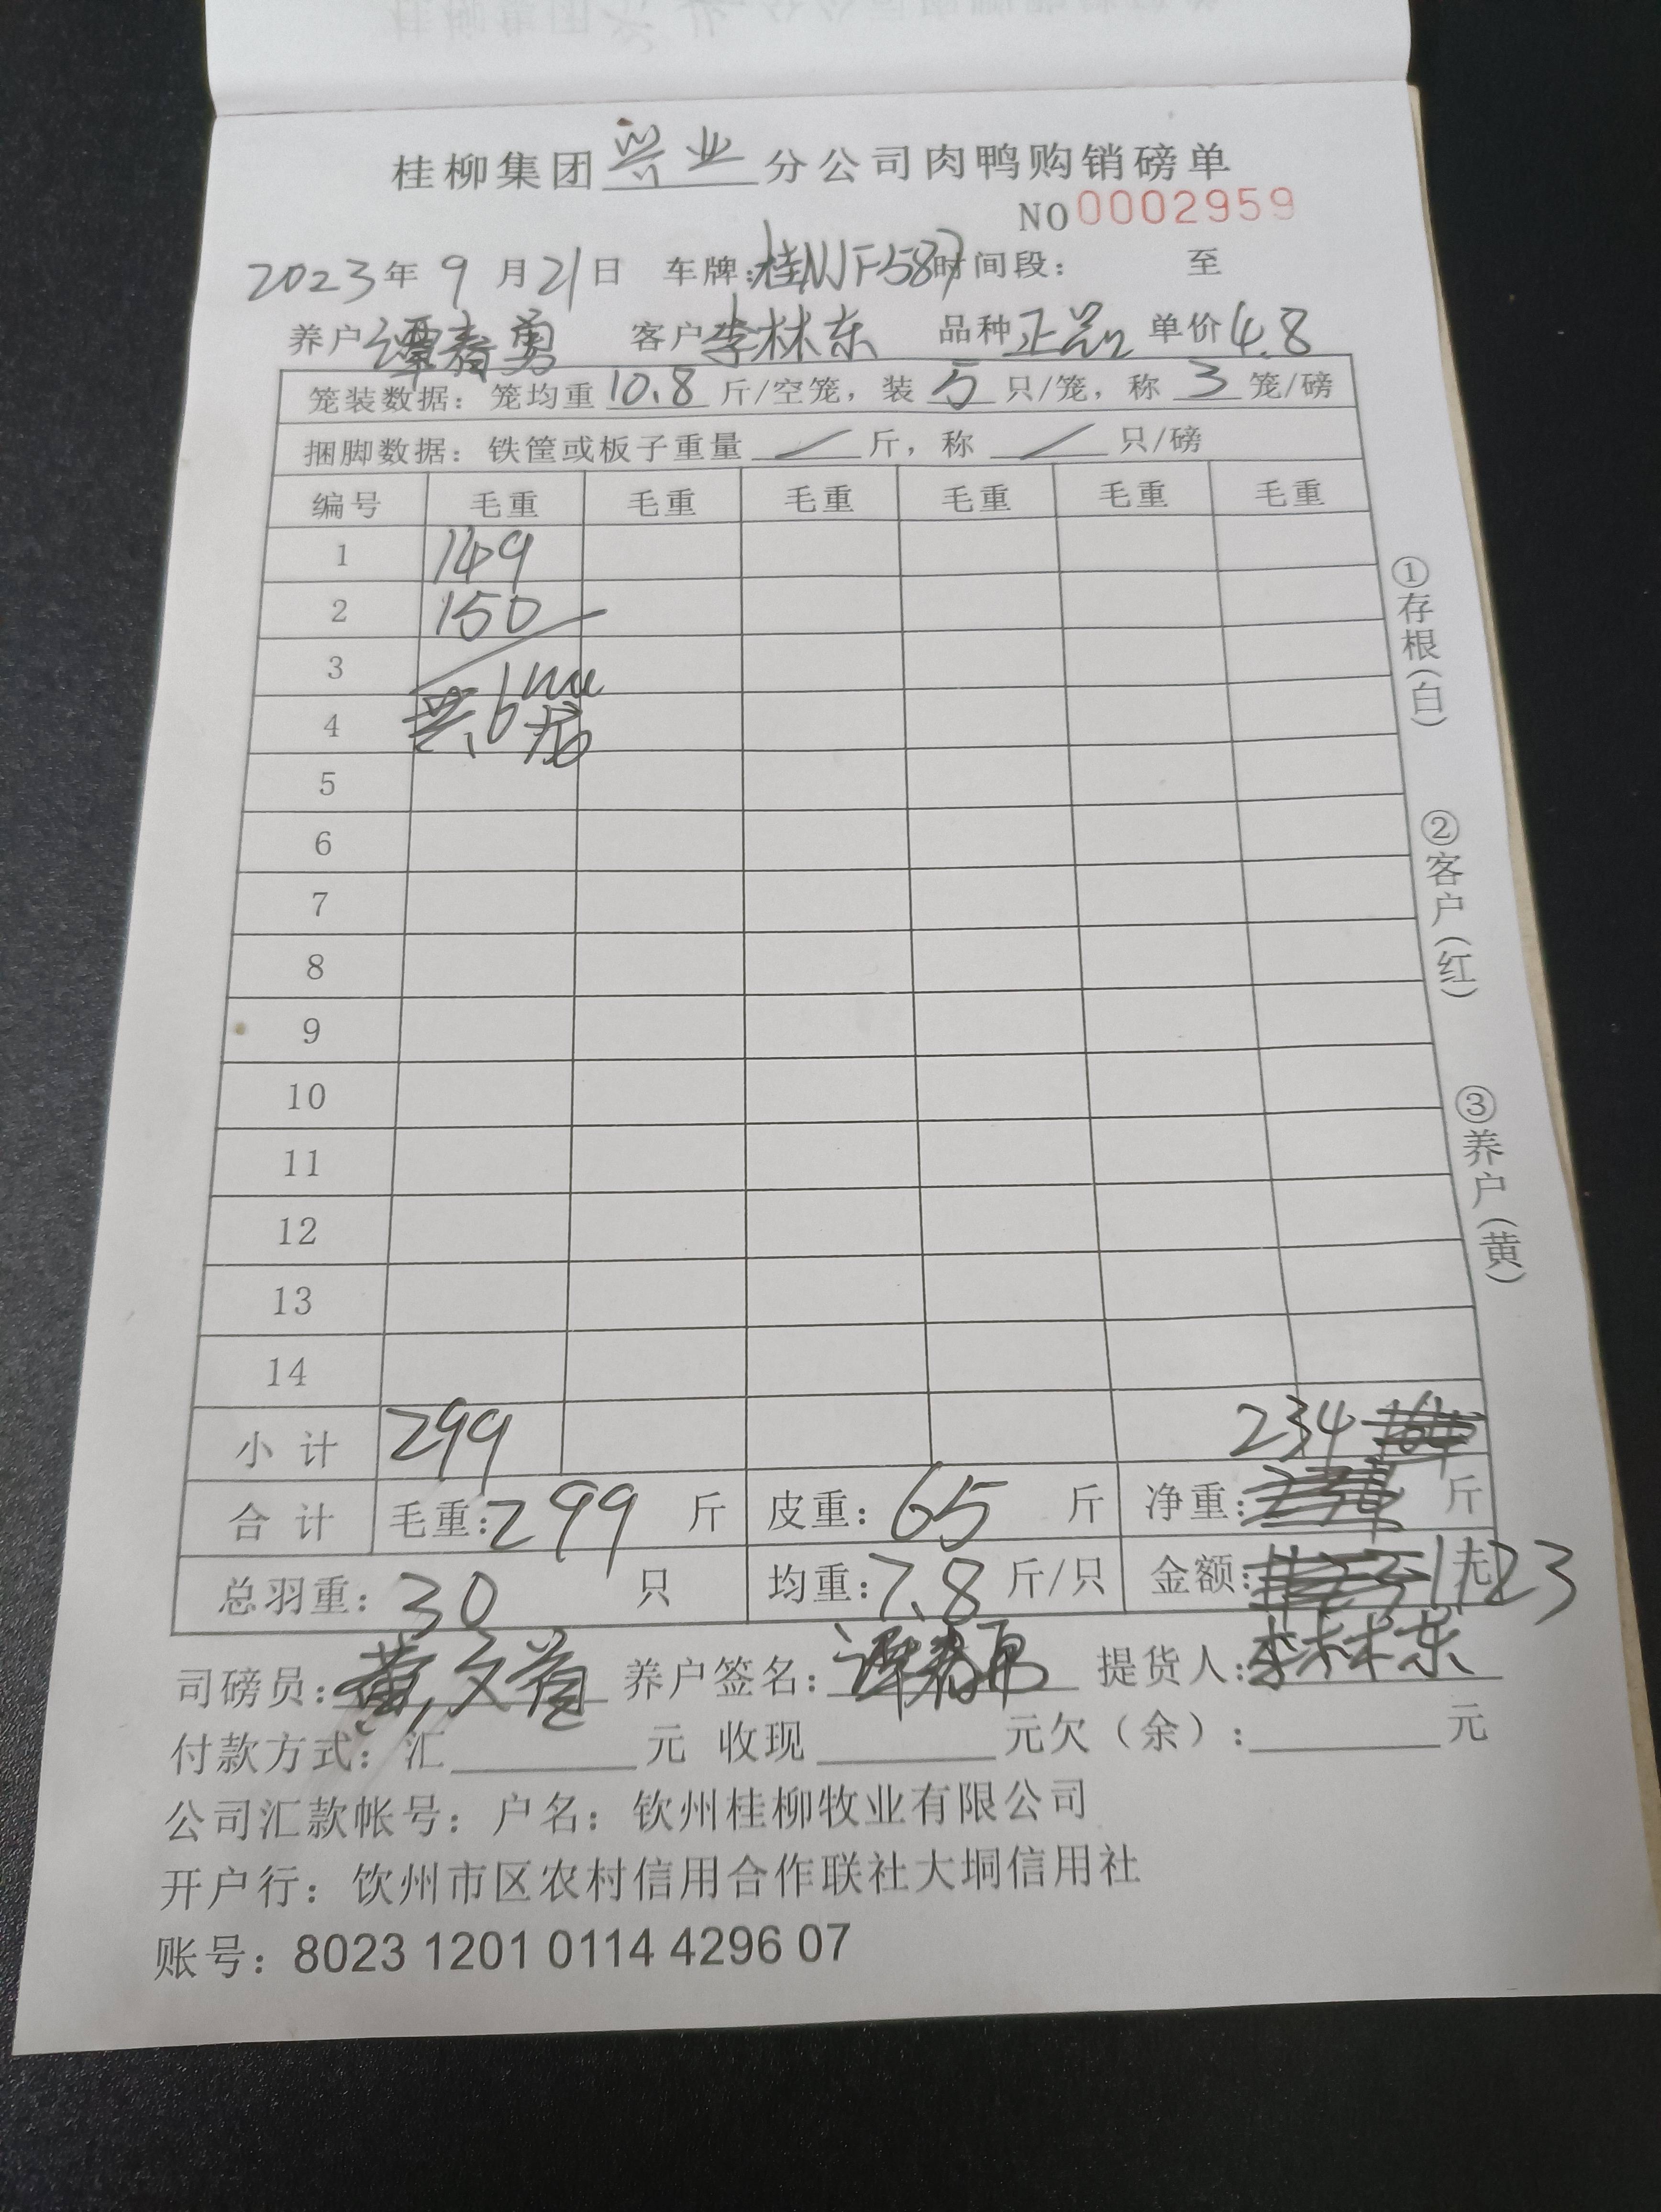 桂柳集团兴业分公司肉鸭购销磅单
NO 0002959
2023年9月21日 车牌:桂NJF587 时间段: 至
养户谭春勇 客户李林东 品种正品 单价4.8
笼装数据: 笼均重10.8斤/空笼, 装5只/笼, 称3笼/磅
捆脚数据: 铁筐或板子重量 / 斤, 称 / 只/磅
编号 毛重 毛重 毛重 毛重 毛重 毛重
1 149
2 150
3
4 共6笼
5
6
7
8
9
10
11
12
13
14
小计 299 234
合计 毛重:299斤 皮重:65斤 净重: 斤
总羽重:30只 均重:7.8斤/只 金额: 元1123
司磅员: 养户签名:谭春勇 提货人:李林东
付款方式: 汇 元 收现 元欠(余): 元
公司汇款帐号: 户名: 钦州桂柳牧业有限公司
开户行: 钦州市区农村信用合作联社大垌信用社
账号: 8023 1201 0114 4296 07
①存根(白)
②客户(红)
③养户(黄)